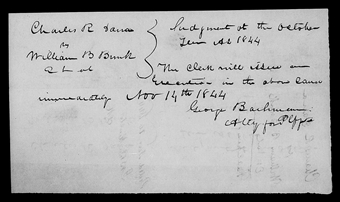 Charles R Dana
vs
William B Brink
et al
Judgment at the October
Term AD 1844
The Clerk will issue an
Execution in the above cause
immediately Nov 14th 1844
George Bachman
Atty for Plffs